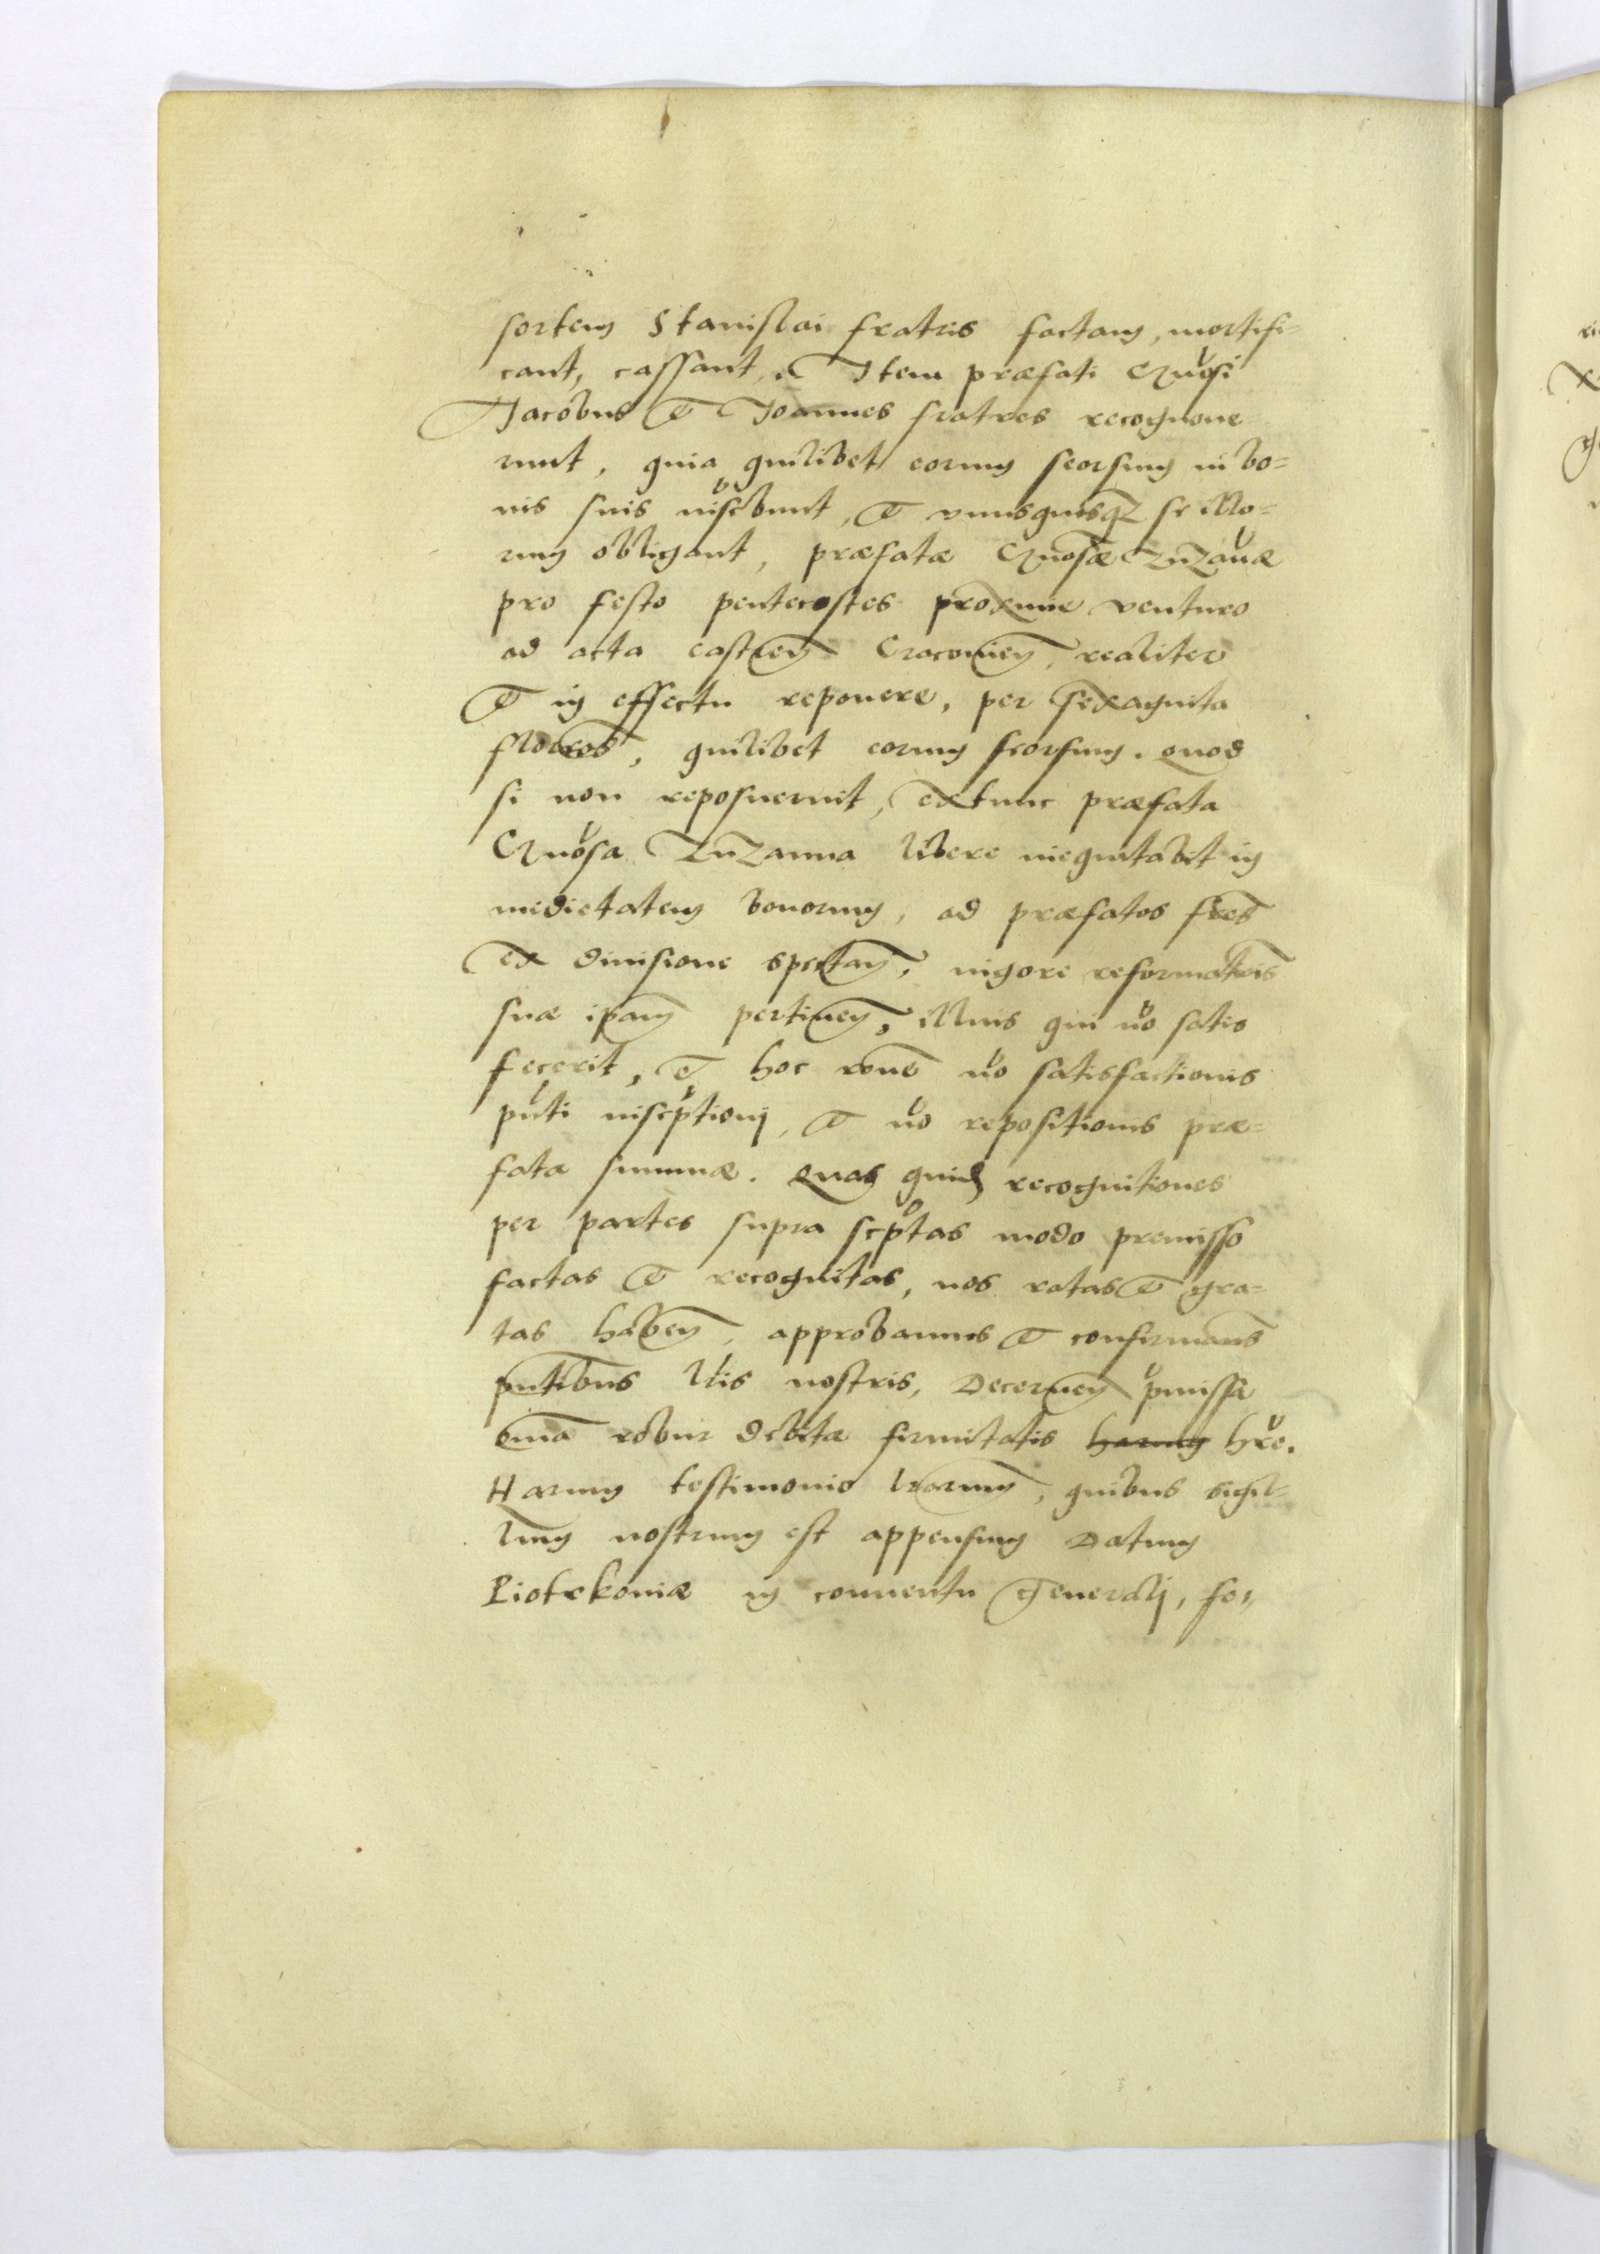 sortem Stanislai fratris factam, mortifi-
cant, cassant. Item præfati Gnosi
Jacobus et Joannes fratres recognoue
runt, quia quilibet eorum seorsum in bo-
nis suis inscbunt, et vnusquisqz se illo-
rum obligant, præfatæ Gnosæ Zuzanæ
pro festo pentecostes proxime venturo
ad acta castren Cracouien, realiter
et in effectu reponere, per sexaginta
florenos, quilibet eorum seorsum. Quod
si non reposuerint, extunc præfata
Gnosa Zuzanna libere inequitabit in
medietatem bonorum, ad præfatos fres
ex diuisione spectan, uigore reformationis
suæ ipam pertinen, illius qui no satis
fecerit, et hoc rone no satisfactionis
pnti inscptioni, et no repositionis præ-
fatæ summæ. Quas quid recognitiones
per partes supra scptas modo premisso
factas et recognitas, nos ratas et gra-
tas haben, approbamus et confirmams
pntibus lris nostris, Decernen pmissa
omia robur debitæ firmitatis harum hre.
Harum testimonio lrarum, quibus sigil-
lum nostrum est appensum Datum
Piotrkoniæ in conuentu Generali, fe,,